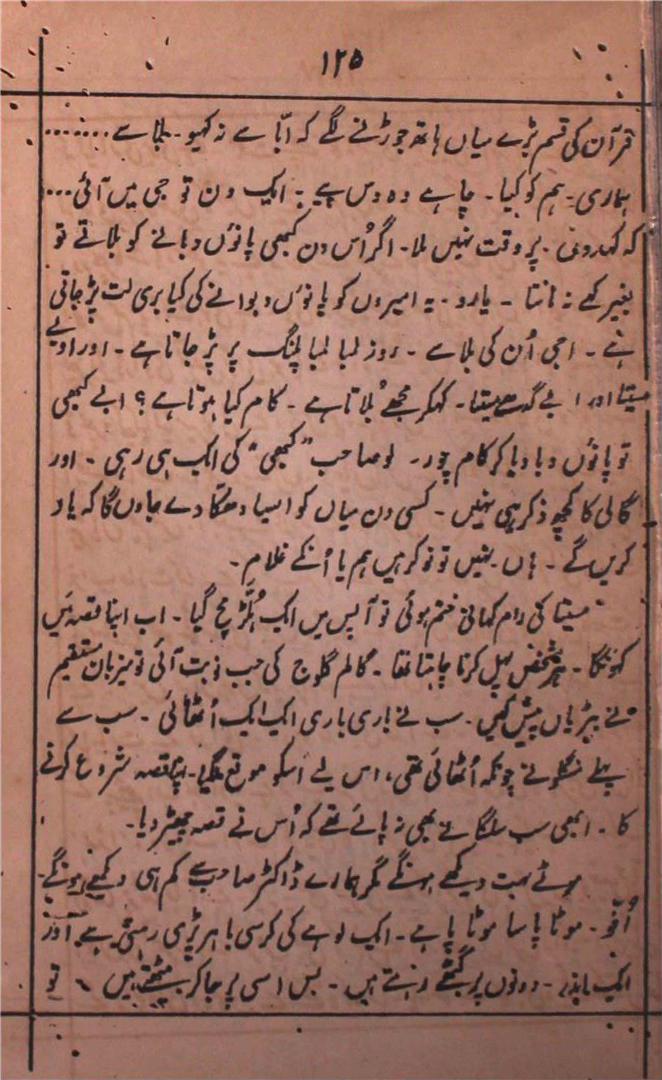 ۱۲۵
قرآن کی قسم بڑے میاں ہاتھ جوڑنے لگے کہ ابّا سے نہ کہیو۔ بلا سے ......
ہماری۔ ہم کو کیا۔ چاہے وہ دس پیے۔ ایک دن تو جی میں آئی ...
کہ کہدوں۔ پر وقت نہیں ملا۔ اگر اُس دن کبھی پانوُں دبانے کو بلاتے تو
بغیر کہے نہ مانتا ۔ یارو۔ یہ امیروں کو پانوُں دبوانے کی کیا بری لت پڑ جاتی
ہے ۔ اجی اُن کی بلا سے ۔ روز لمبا لمبا پلنگ پر پڑ جاتا ہے ۔ اور او بے
سیتا اور ابے گدھے سیتا۔ کہکر مجھے بُلاتا ہے ۔ کام کیا ہوتا ہے ؟ ابے کبھی
تو پانوُں دبا دیا کر کام چور۔ لو صاحب "کبھی" کی ایک ہی رہی ۔ اور
گالی کا کچھ ذکر ہی نہیں ۔ کسی دن میاں کو ایسا دھکا دے جاوں گا کہ یاد
کریں گے ۔ ہاں نہیں تو نوکر ہیں ہم یا اُنکے غلام ۔
سیتا کی رام کہانی ختم ہوئی تو آپس میں ایک ہُلّڑ مچ گیا ۔ اب اپنا قصہ میں
کہونگا ۔ ہر شخص پہل کرنا چاہتا تھا ۔ گالم گلوج کی جب نوبت آئی تو میزبان مستقیم
نے بیڑیاں پیش کیں ۔ سب نے باری باری ایک ایک اُٹھائی ۔ سب سے
پہلے منگلو نے چونکہ اُٹھائی تھی، اس لیے اُسکو موقع ملگیا۔ اپنا قصہ شروع کرنے
کا ۔ ابھی سب سلگانے بھی نہ پائے تھے کہ اُس نے قصہ چھیڑ دیا۔
موٹے بہت دیکھے ہونگے مگر ہمارے ڈاکٹر صاحب سے کم ہی دیکھے ہونگے۔
اُفّو ۔ موٹا پا سا موٹا پا ہے ۔ ایک لوہے کی کرسی باہر پڑی رہتی ہے۔
ایک ۔ دونوں پر رہتے ہیں ۔ بس اسی پر جاکر بیٹھتے ہیں ۔ تو